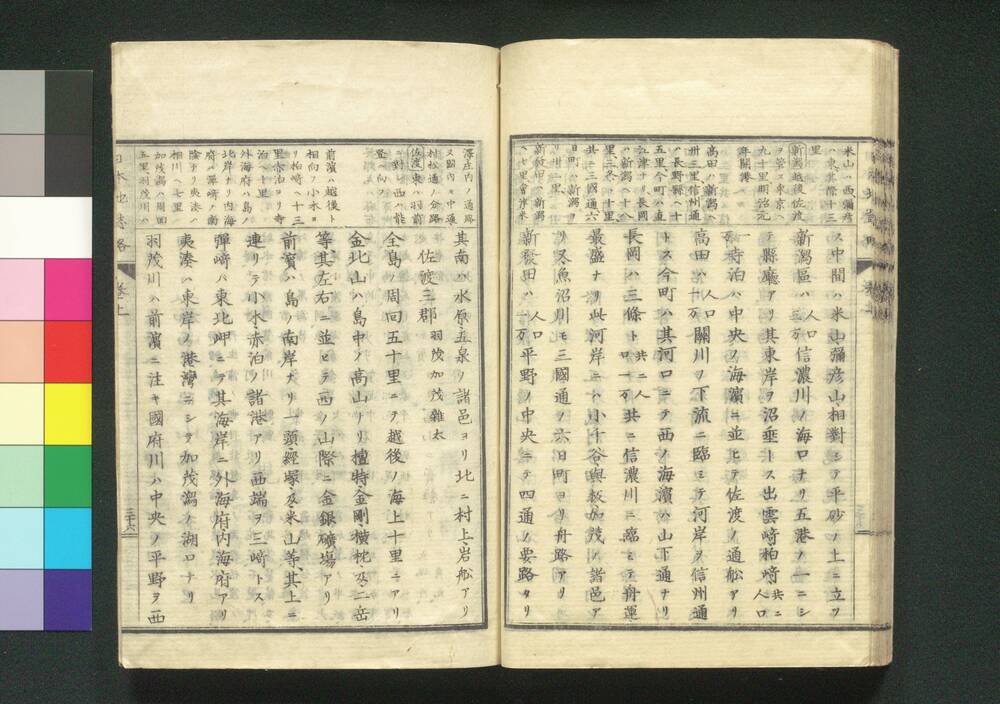 ス中間ハ米山彌彦山相對シテ平砂ノ上ニ立ツ
新潟區ハ人口三万信濃川ノ海口ナリ五港ノ一ニシ
テ縣廳アリ其東岸ヲ沼垂トス出雲崎柏崎共ニ人口
一万寺泊ハ中央ノ海濱ニ並ヒテ佐渡ノ通船アリ
高田ハ人口十万關川ノ下流ニ臨ミテ河岸ヲ信州通
トス今町ハ其河口ニテ西ノ海濱ハ山下通ナリ
長岡ハ三條ト共ニ人口一万共ニ信濃川ニ臨ミテ舟運
最盛ナリ此河岸ニハ小千谷與板加茂ノ諸邑ア
リ又魚沼川モ三國通ノ六日町ヨリ舟路アリ
新發田ハ人口一万平野ノ中央ニテ四通ノ要路タリ
米山ハ西彌彦
ハ東其際十三
里
新潟越後佐渡
ヲ管ス東京ヘ
九十里明治元
年開港
高田ハ新潟ヘ
卅三里信州通
ハ長野縣ヘ十
五里今町ハ直
江津ナリ長岡
ハ新潟ヘ十八
里三條ヘ十里
共ニ三國通六
日町ハ新潟ヲ
新發田ハ新潟
ヘ七里會津米
其南ハ水原五泉ノ諸邑ヨリ北ニ村上岩船アリ
佐渡三郡 羽茂加茂雜太
全島ノ周回五十里ニテ越後ノ海上十里ニアリ
金北山ハ島中ノ高山ナリ檀特金剛横枕及二岳
等其左右ニ並ヒテ西ノ山際ニ金銀礦場アリ
前濱ハ島ノ南岸ナリ一頭經塚及米山等其上ニ
連リテ小水赤泊ノ諸港アリ西端ヲ三崎トス
彈崎ハ東北岬ニテ其海岸ニ外海府内海府アリ
夷湊ハ東岸ノ港灣ニシテ加茂潟ノ湖口ナリ
羽茂川ハ前濱ニ注キ國府川ハ中央ノ平野ヲ西
澤庄内ノ通路
又國内モ中通
村松通ノ分路
佐渡ハ東ハ羽前
ニ對シ西ハ能
登ニ向フ
前濱ハ越後ト
相向フ小木ヨ
リ柏崎ヘ十三
里赤泊ヨリ寺
泊ヘ十里
外海府ハ島ノ
北岸ナリ内海
府ハ彈崎ノ南
陰ナリ夷湊ハ
相川ヘ七里
加茂潟ハ周回
五里羽茂川ハ
三十六